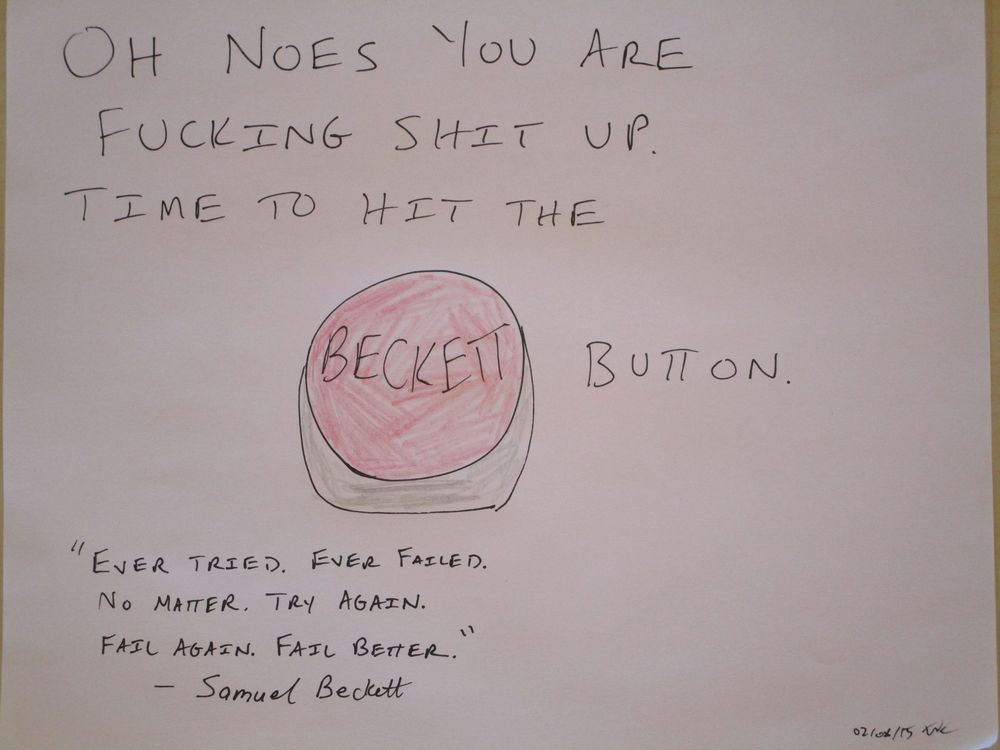 OH NOES YOU ARE
FUCKING SHIT UP.
TIME TO HIT THE
BECKETT BUTTON.
"EVER TRIED. EVER FAILED.
NO MATTER. TRY AGAIN.
FAIL AGAIN. FAIL BETTER."
— Samuel Beckett